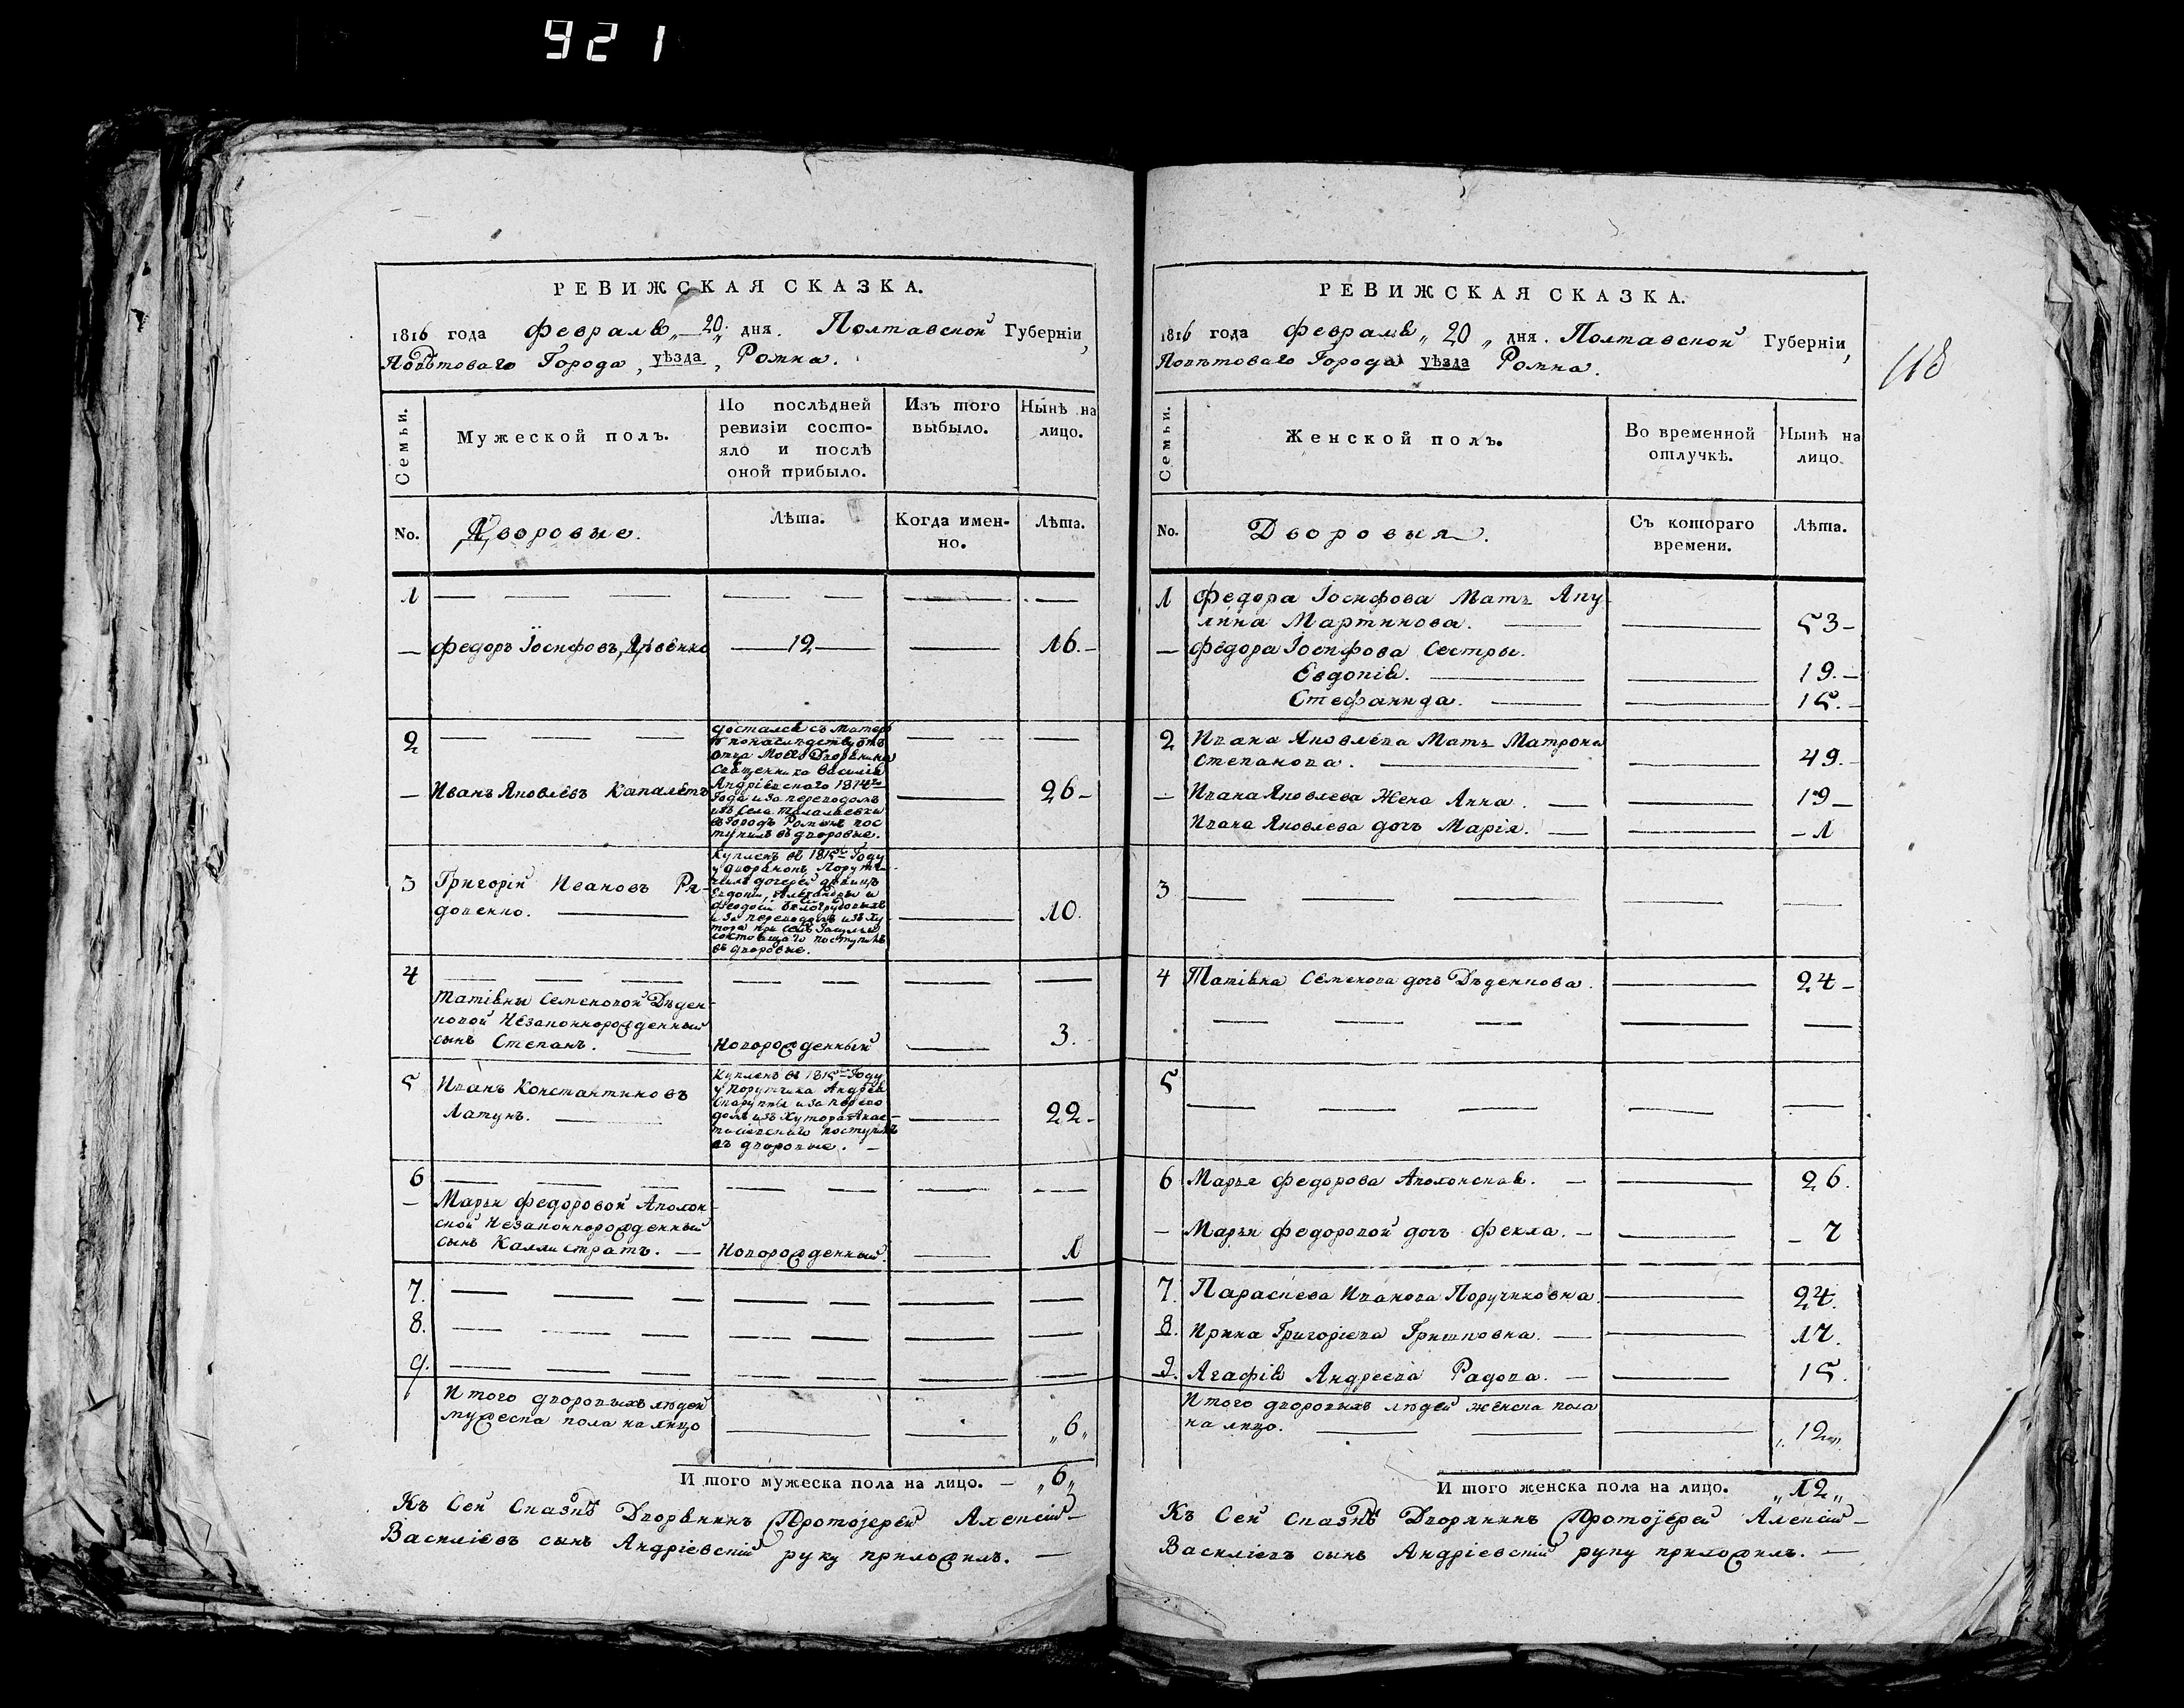 921
РЕВИЖСКАЯ СКАЗКА.
1816 года Февраля „ 20 „ дня. Полтавской Губерніи,
Повѣтоваго Города, уѣзда, Ромна.
Семьи.
Мужеской полъ.
По послѣдней
ревизіи состо-
яло и послѣ
оной прибыло.
Изъ того
выбыло.
Нынѣ на
лицо.
No.
Дворовые.
Лѣта.
Когда имен-
но.
Лѣта.
1
— Федоръ Іосифовъ 12 16.
2
достался съ матерю
по наслѣдству отъ
отца моего Дворянина
Священника Василія
Андріевскаго 1814го
Года и за переводомъ
изъ Села
въ городъ Роменъ пос
тупилъ въ дворовые.
— Иванъ Яковлевъ 26
3 Григорій Ивановъ Ра-
доненко. 10.
Купленъ въ 1815мъ Году
у дворянокъ Поручи-
чика дочерей дѣвицъ
Евдокіи, Александры и
Феодосіи
и за переводомъ изъ Ху
тора при селѣ
состоящаго поступилъ
въ дворовые.
4
Татіяны Семеновой Дѣден-
ковой Незаконнорожденный
сынъ Степанъ. Новорожденный 3.
5 Иванъ Константиновъ
Лапунъ. 22
Купленъ въ 1815мъ Году
у Порутчика Андрея
и за перево
домъ изъ Хутора
поступилъ
въ дворовые.
6
— Марьи Федоровой Аполон-
ской Незаконнорожденный
сынъ Каллистратъ. — Новорожденный. 1
7.
8.
9.
Итого дворовыхъ людей
мужеска пола на лицо „6„
И того мужеска пола на лицо. — „6„
Къ Сей Сказкѣ Дворянинъ Протоіерей Алексій
Василіевъ сынъ Андріевскій руку приложилъ.
118
РЕВИЖСКАЯ СКАЗКА.
1816 года Февраля „ 20 „ дня. Полтавской Губерніи,
Повѣтоваго Города уѣзда Ромна.
Семьи.
Женской полъ.
Во временной
отлучкѣ.
Нынѣ на
лицо.
No.
Дворовыя.
Съ котораго
времени.
Лѣта.
1 Федора Іосифова Мать Аку
лина Мартинова. 53
— Федора Іосифова Сестры.
Евдокія. 19.
Стефанида. 15.
2 Ивана Яковлева Мать Матрона
Степанова. 49.
— Ивана Яковлева Жена Анна. 19
Ивана Яковлева дочь Марія. 1
3
4 Татіяна Семенова дочь Дѣденкова. 24
5
6 Марья Федорова Аполонская. 26.
— Марьи Федоровой дочь Фекла. 7
7. Параскева Иванова Поручиковна. 24.
8. Ирина Григоріева Гришковна. 17.
9. Агафія Андреева Радова. 15.
Итого дворовыхъ людей женска пола
на лицо. „12„
И того женска пола на лицо. „12„
Къ Сей Сказкѣ Дворянинъ Протоіерей Алексій
Василіевъ сынъ Андріевскій руку приложилъ.